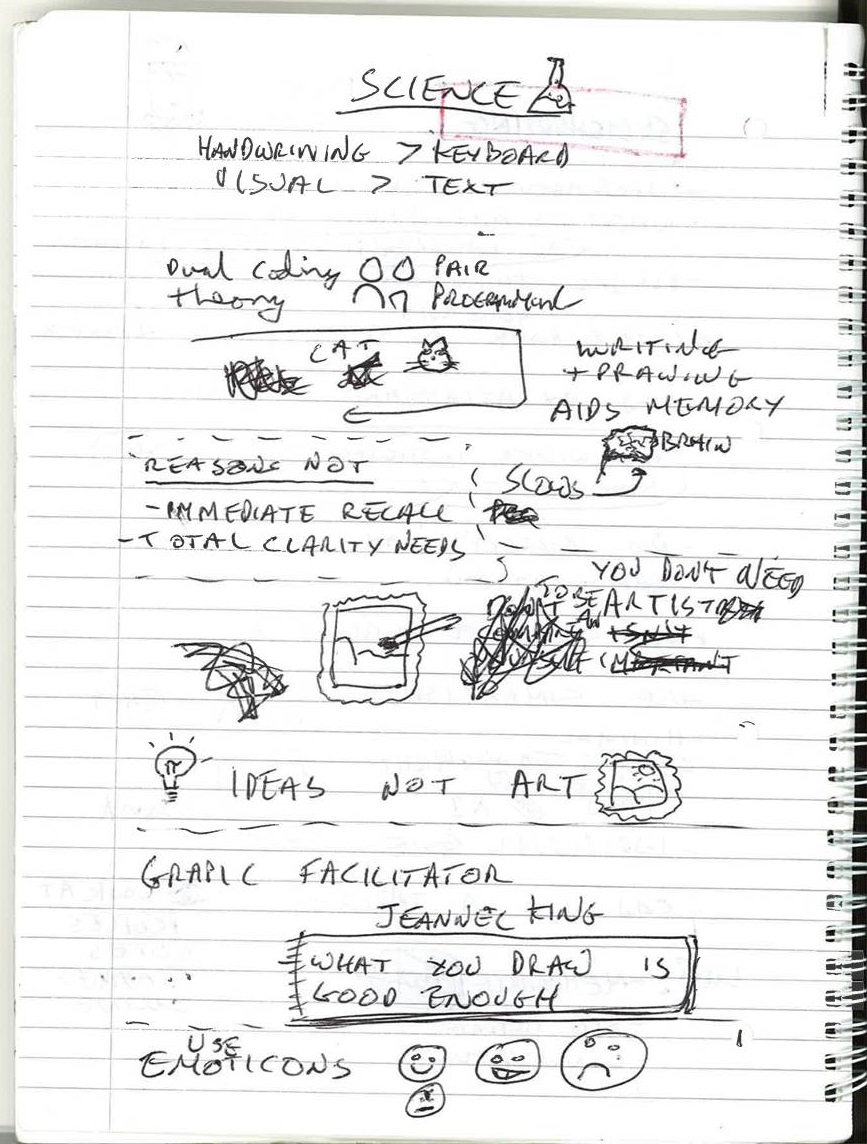 SCIENCE
HANDWRINING > KEYBOARD
VISUAL > TEXT
Dual Coding
theory
PAIR
PROGRAMMING
CAT
WRITING
+ DRAWING
AIDS MEMORY
BRAIN
SLOWS
REASONS NOT
- IMMEDIATE RECALL
- TOTAL CLARITY NEEDS
YOU DON'T NEED
TO BE
AN
ARTIST
IDEAS NOT ART
GRAPIC FACILITATOR
JEANNEL KING
WHAT YOU DRAW IS
GOOD ENOUGH
USE
EMOTICONS